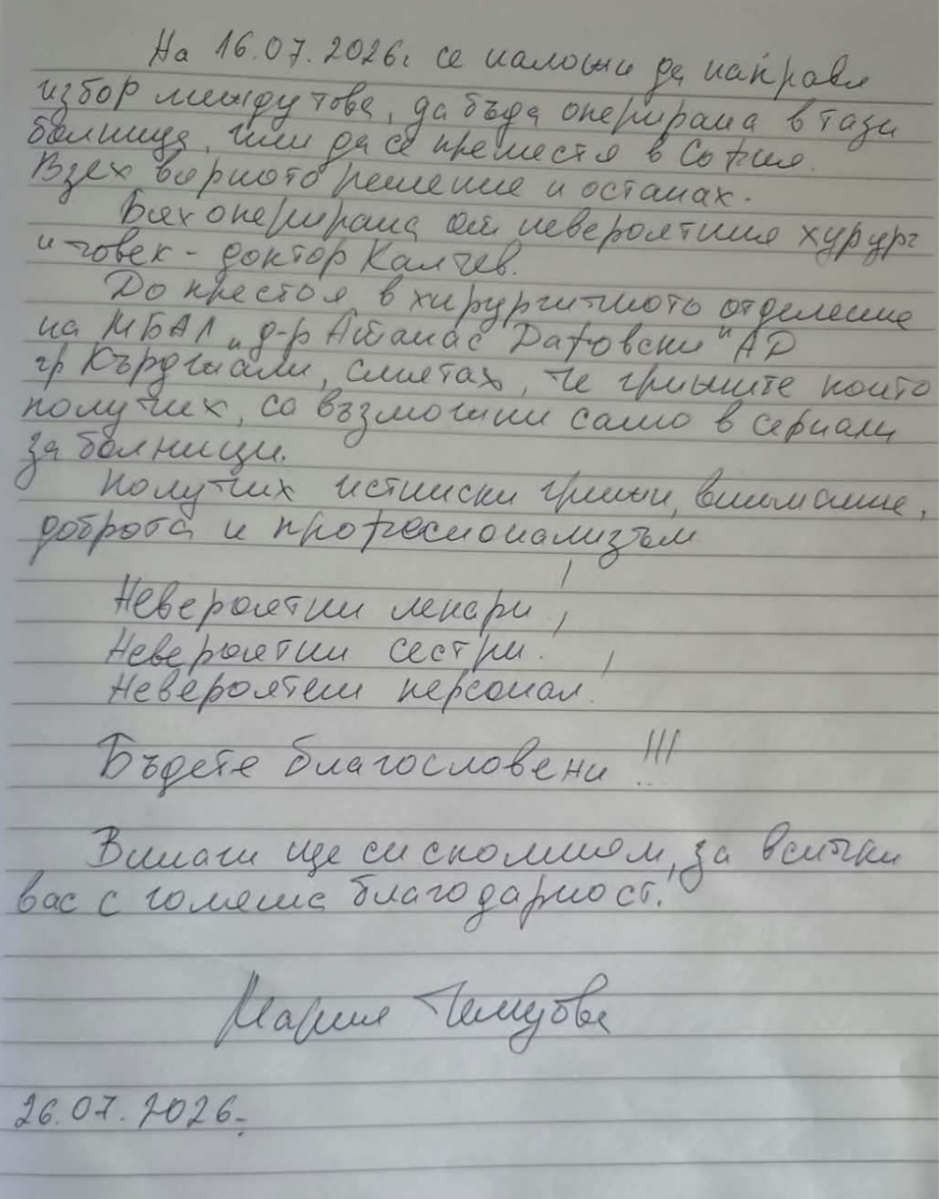 На 16.07.2026г се наложи да направя
избор между това, да бъда оперирана в тази
болница, или да се преместя в София.
Взех вярното решение и останах.
Бях оперирана от невероятния хурург
и човек - доктор Калчев.
До престоя в хирургичното отделение
на МБАЛ "д-р Атанас Дафовски" АД
гр Кърджали, смятах, че грижите които
получих, са възможни само в сериали
за болници.
Получих истински грижи, внимание,
доброта и професионализъм
Невероятни лекари!
Невероятни сестри!
Невероятен персонал!
Бъдете благословени!!!
Винаги ще си спомням, за всички
вас с голяма благодарност!
Мария
26.07.2026г